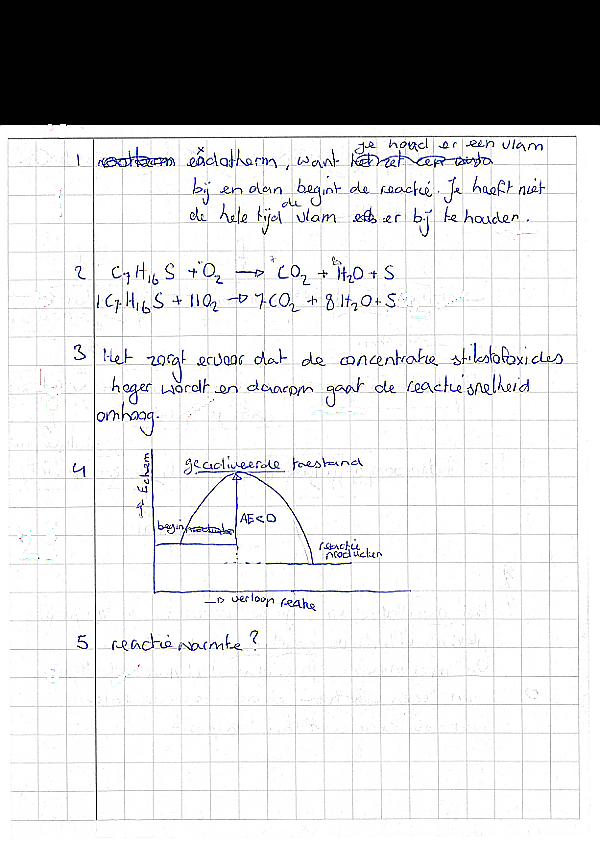 1 exotherm, want je houd er een vlam
bij en dan begint de reactie. Je hoeft niet
de hele tijd de vlam er bij te houden.
2 C₇H₁₆S + O₂ → CO₂ + H₂O + S
1 C₇H₁₆S + 11O₂ → 7CO₂ + 8H₂O + S
3 Het zorgt ervoor dat de concentratie stikstofoxides
hoger wordt en daarom gaat de reactiesnelheid
omhoog.
4 geactiveerde toestand
→ Echem
begin
ΔE<0
reactie
producten
→ verloop reatie
5 reactiewarmte?